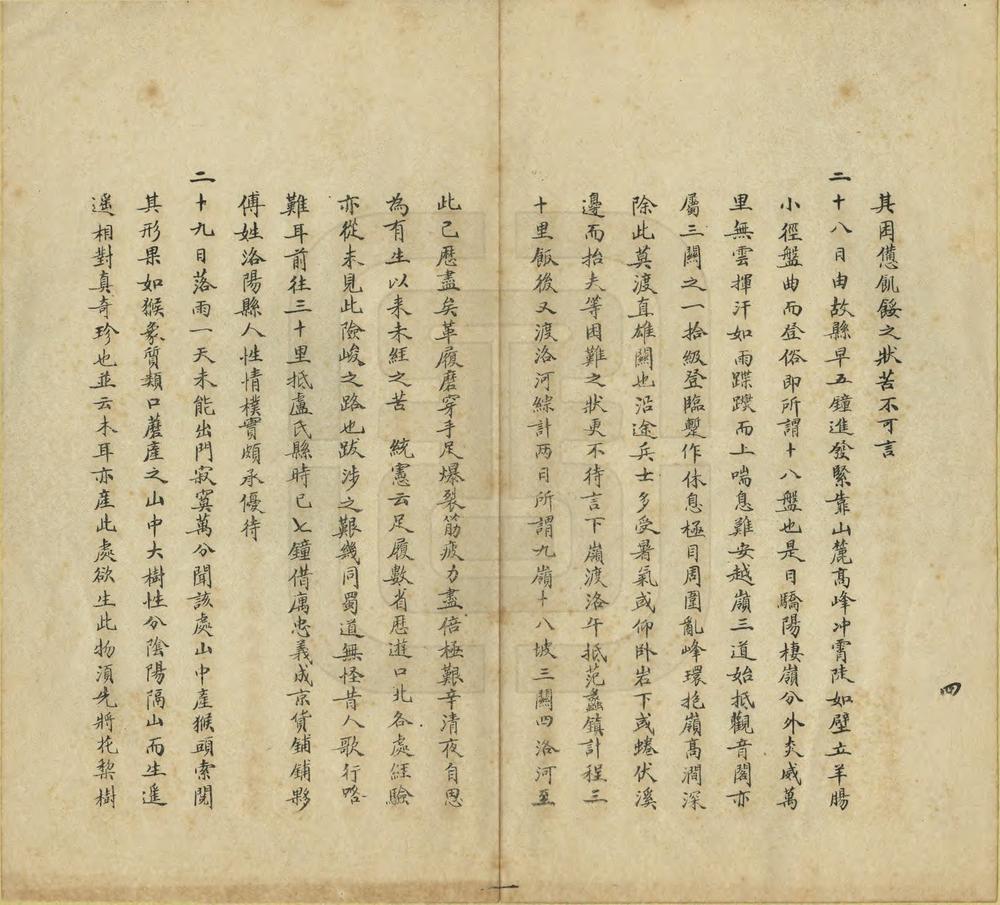 其困憊飢餒之狀苦不可言
二十八日由故縣早五鐘進發緊靠山麓高峰冲霄陡如壁立羊腸
小徑盤曲而登俗即所謂十八盤也是日驕陽棲嶺分外炎威萬
里無雲揮汗如雨蹀蹀而上喘息難安越嶺三道始抵觀音閣亦
屬三關之一拾級登臨蹔作休息極目周圍亂峰環抱嶺高澗深
除此莫渡直雄關也沿途兵士多受暑氣或仰卧岩下或蜷伏溪
邊而抬夫等困難之狀更不待言下嶺渡洛午抵范蠡鎮計程三
十里飯後又渡洛河綜計两日所謂九嶺十八坡三關四洛河至
此已歷盡矣革履磨穿手足爆裂筋疲力盡倍極艱辛清夜自思
為有生以来未經之苦 統憲云足履數省歷遊口北各處經驗
亦從未見此險峻之路也跋涉之艱幾同蜀道無怪昔人歌行咯
難耳前往三十里抵盧氏縣時已七鐘借寓忠義成京貨鋪鋪夥
傅姓洛陽縣人性情樸實頗承優待
二十九日落雨一天未能出門寂寞萬分聞該處山中產猴頭索閱
其形果如猴象質類口蘑產之山中大樹性分陰陽隔山而生遥
遥相對真奇珍也並云木耳亦産此處欲生此物須先將花梨樹
四